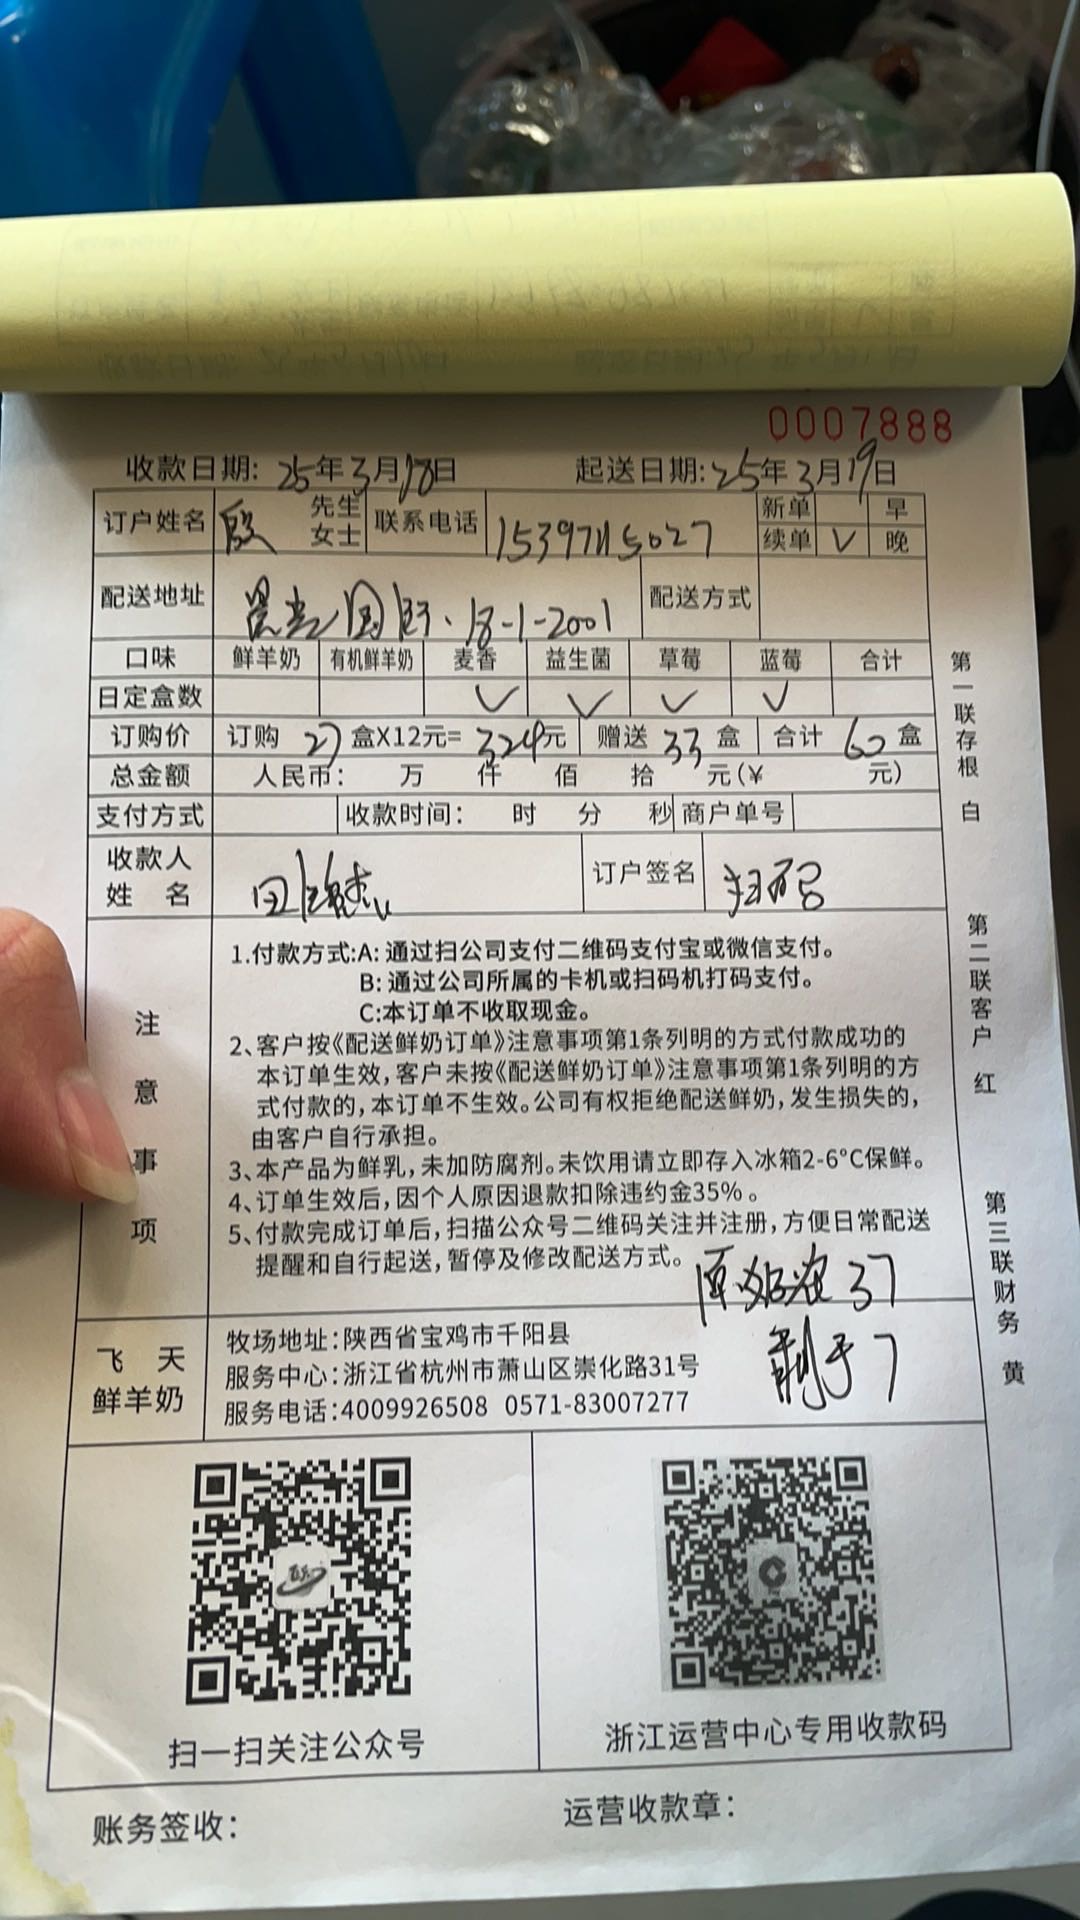 0007888
收款日期: 25年3月18日 起送日期: 25年3月19日
订户姓名 殷 先生 女士 联系电话 15397115027 新单 早
续单 ✓ 晚
配送地址 国际·18-1-2001 配送方式
口味 鲜羊奶 有机鲜羊奶 麦香 益生菌 草莓 蓝莓 合计
日定盒数 ✓ ✓ ✓ ✓
订购价 订购 27 盒X12元= 324元 赠送 33 盒 合计 60 盒
总金额 人民币: 万 仟 佰 拾 元(¥ 元)
支付方式 收款时间: 时 分 秒 商户单号
收款人姓名 田 订户签名 扫码
注意事项
1.付款方式:A: 通过扫公司支付二维码支付宝或微信支付。
B: 通过公司所属的卡机或扫码机打码支付。
C:本订单不收取现金。
2、客户按《配送鲜奶订单》注意事项第1条列明的方式付款成功的
本订单生效,客户未按《配送鲜奶订单》注意事项第1条列明的方
式付款的,本订单不生效。公司有权拒绝配送鲜奶,发生损失的,
由客户自行承担。
3、本产品为鲜乳,未加防腐剂。未饮用请立即存入冰箱2-6°C保鲜。
4、订单生效后,因个人原因退款扣除违约金35%。
5、付款完成订单后,扫描公众号二维码关注并注册,方便日常配送
提醒和自行起送,暂停及修改配送方式。
37
剩于7
飞天鲜羊奶
牧场地址:陕西省宝鸡市千阳县
服务中心:浙江省杭州市萧山区崇化路31号
服务电话:4009926508 0571-83007277
扫一扫关注公众号
浙江运营中心专用收款码
账务签收:
运营收款章:
第一联存根 白
第二联客户 红
第三联财务 黄